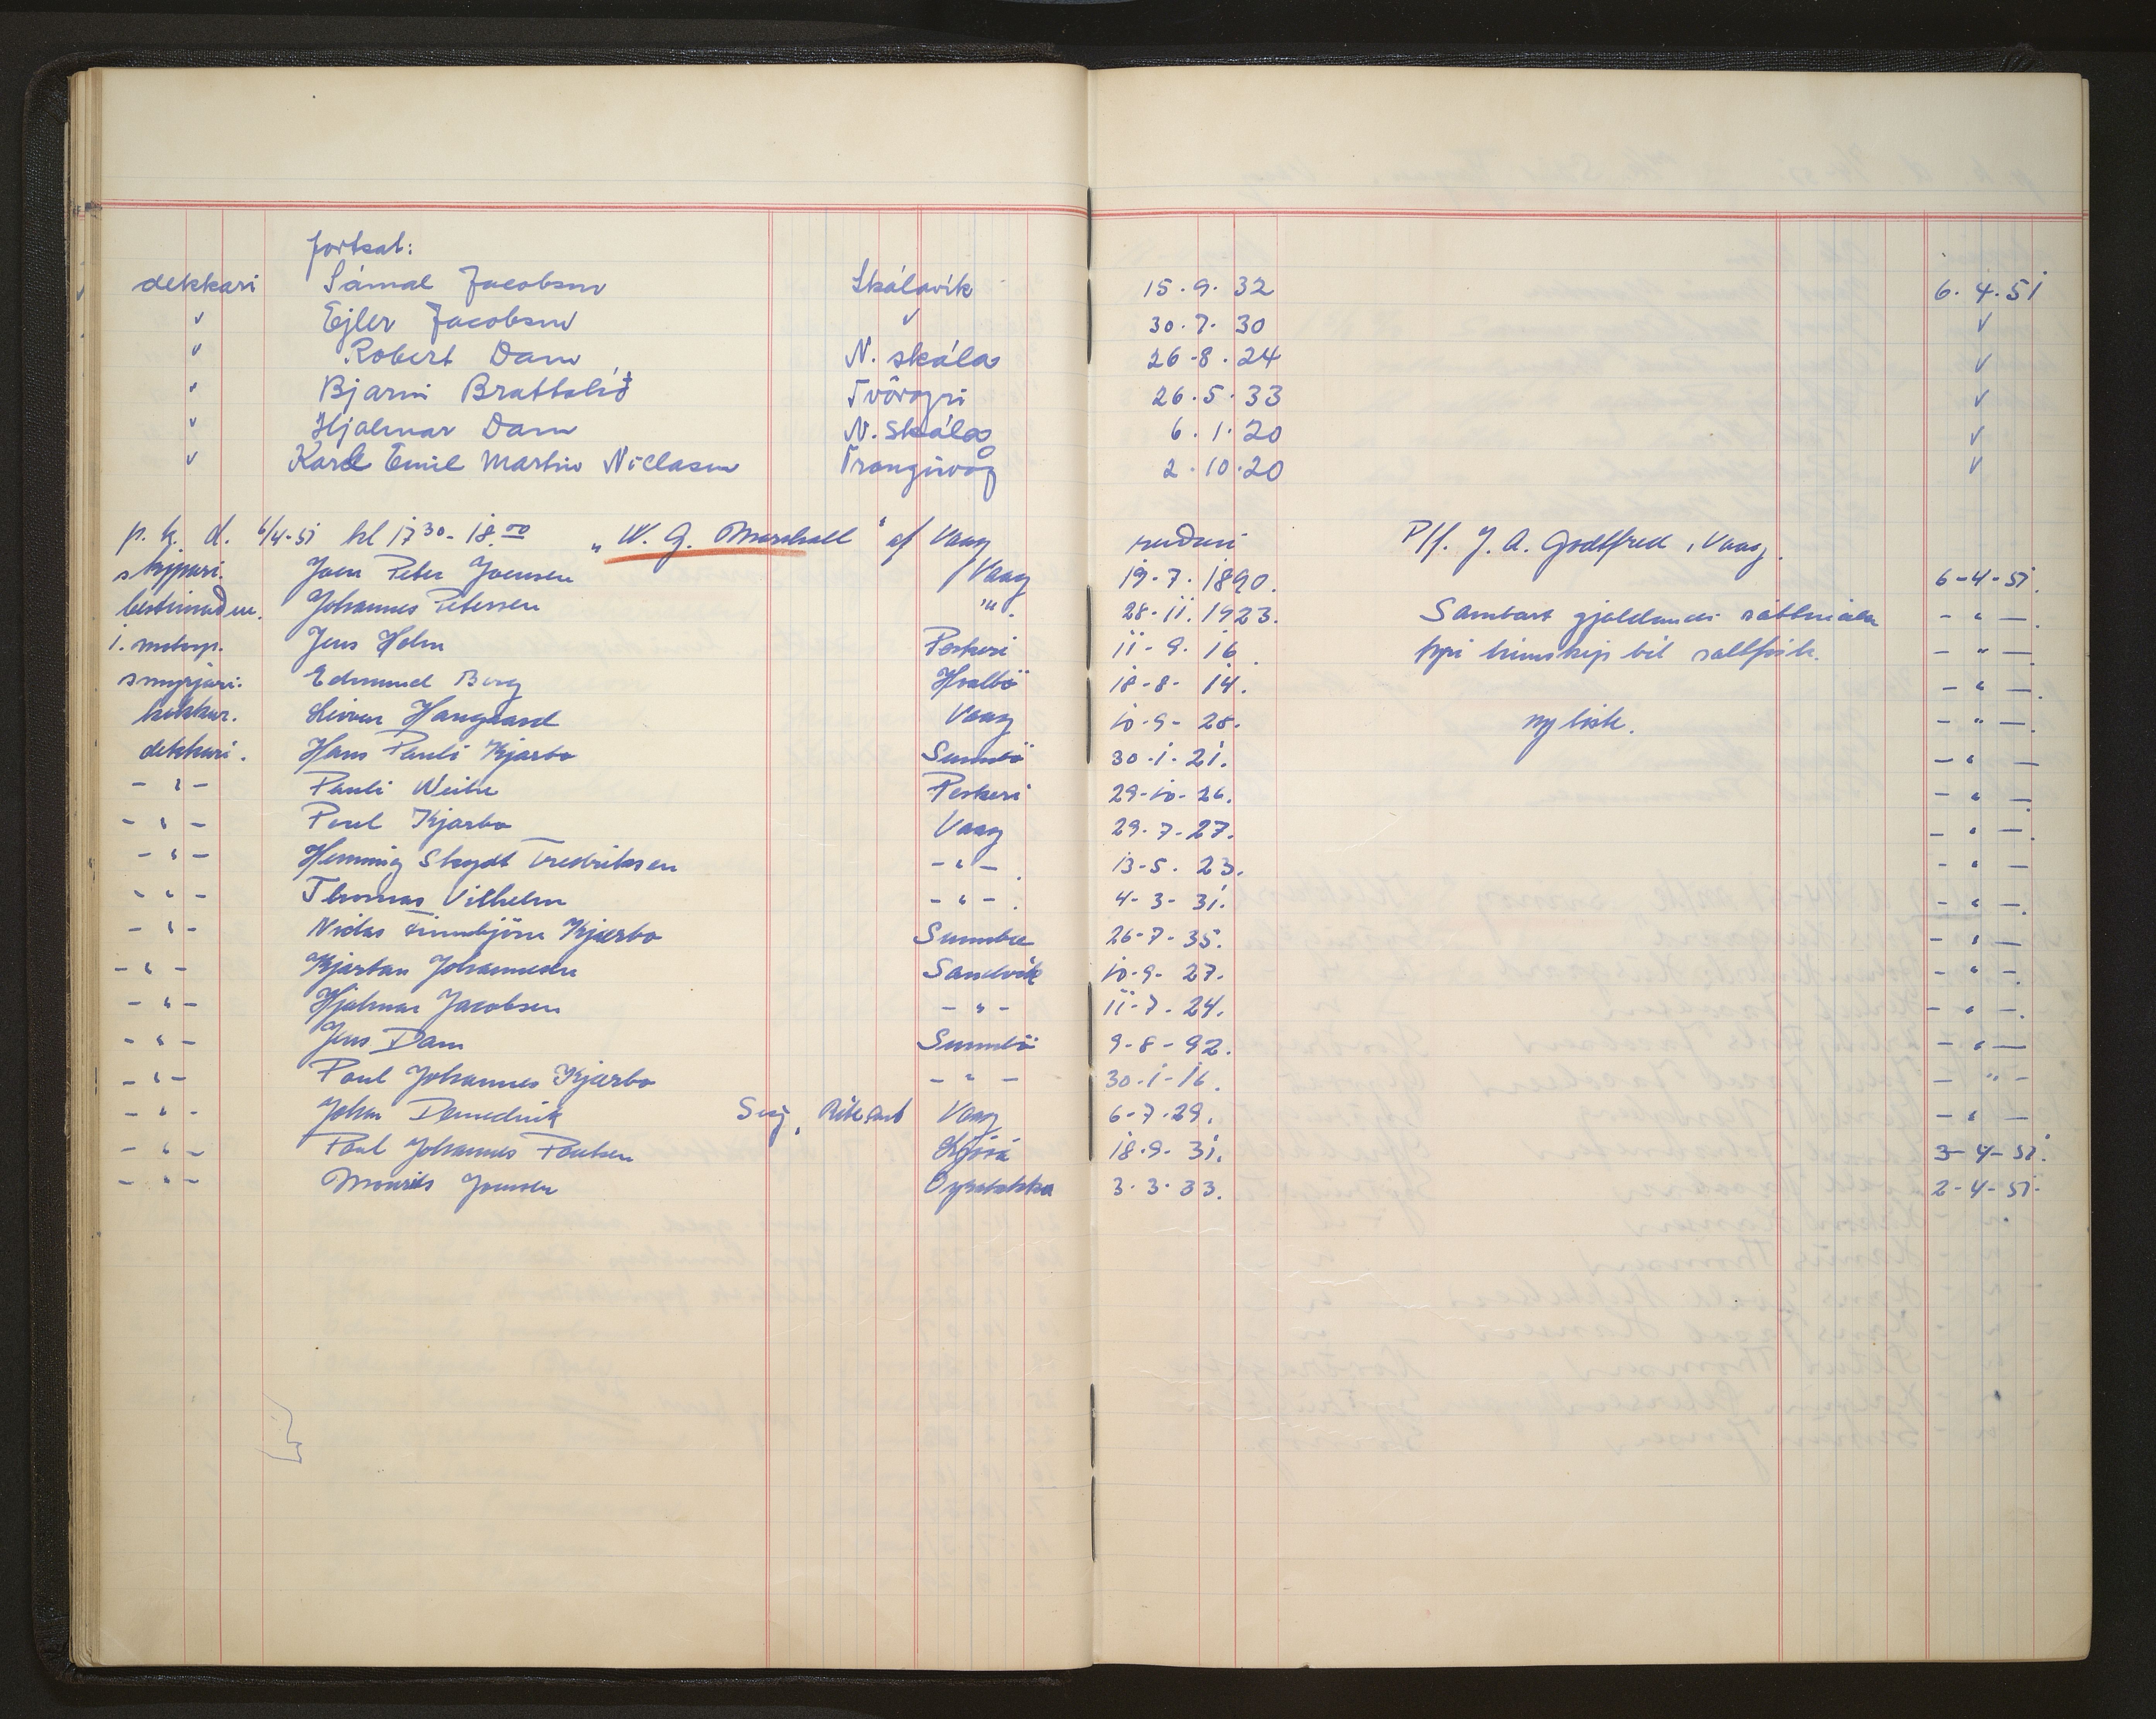 fortsat:
dekkari Sámal Jacobsen Skálavík 15.9.32 6.4.51
v Ejler Jacobsen v 30.7.30 v
v Robert Dam N. skála 26-8.24 v
v Bjarni Brattalíð Tvöroyri 26.5.33 v
v Hjalmar Dam N. skála 6.1.20 v
v Karl Emil Martin Niclasen Trongisvåg 2.10.20 v
p. k. d. 6/4-51 kl 17 30 - 18.00 „W. G. Marshall" af Vaag ruðari P/f. J. A. Godtfred, Vaag.
skipari. Joen Peter Joensen Vaag 19.7.1890. 6-4-51.
bestimaður. Johannes Petersen -"-. 28-11.1923. Sambart gjaldandi sáttmála - " -.
1. motorp. Jens Holm Porkeri 11-9.16. fyri línuskip til saltfisk. - " -.
smyrjari. Edmund Berg Hvalbö 18-8-14. - " -.
kokkur. Vaag 10-9-28. - " -.
dekkari. Hans Pauli Kjærbo Sumbö 30.1.21. - " -
- " - Pauli Weihe Porkeri 29-10-26. - " -.
- " - Poul Kjærbo Vaag 29.7-27. - " -.
- " - Henning Skydt Fredriksen - " -. 13-5.23. - " -
- " - Thomas Vilhelm - " -. 4-3-31. - " -.
- " - Niclas Finnbjörn Kjærbo Sumbö 26-7-35. - " -
- " - Kjartan Johannesen Sandvík 10-9-27. - " -.
- " - Hjalmar Jacobsen - " - 11-7.24. - " -.
- " - Jens Dam Sumbö 9-8-92. - " -
- " - Poul Johannes Kjærbo - " - 30.1-16. - " -
- " - Johan Vaag 6-7.29. - " -
- " - Poul Johannes Poulsen 18.9-31. 3-4-51.
- " - Mouris Joensen 3.3.33. 2-4-51.